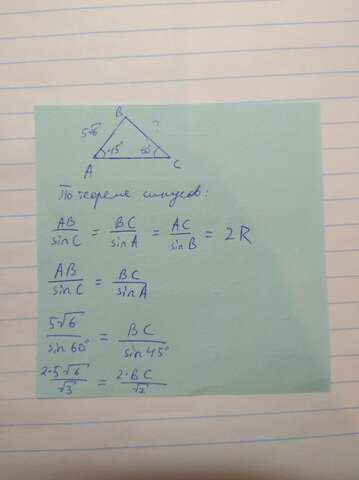 B
5√6 ?
45° 60°
A C
По теореме синусов:
AB/sin C = BC/sin A = AC/sin B = 2R
AB/sin C = BC/sin A
5√6/sin 60° = BC/sin 45°
2·5√6/√3 = 2·BC/√2